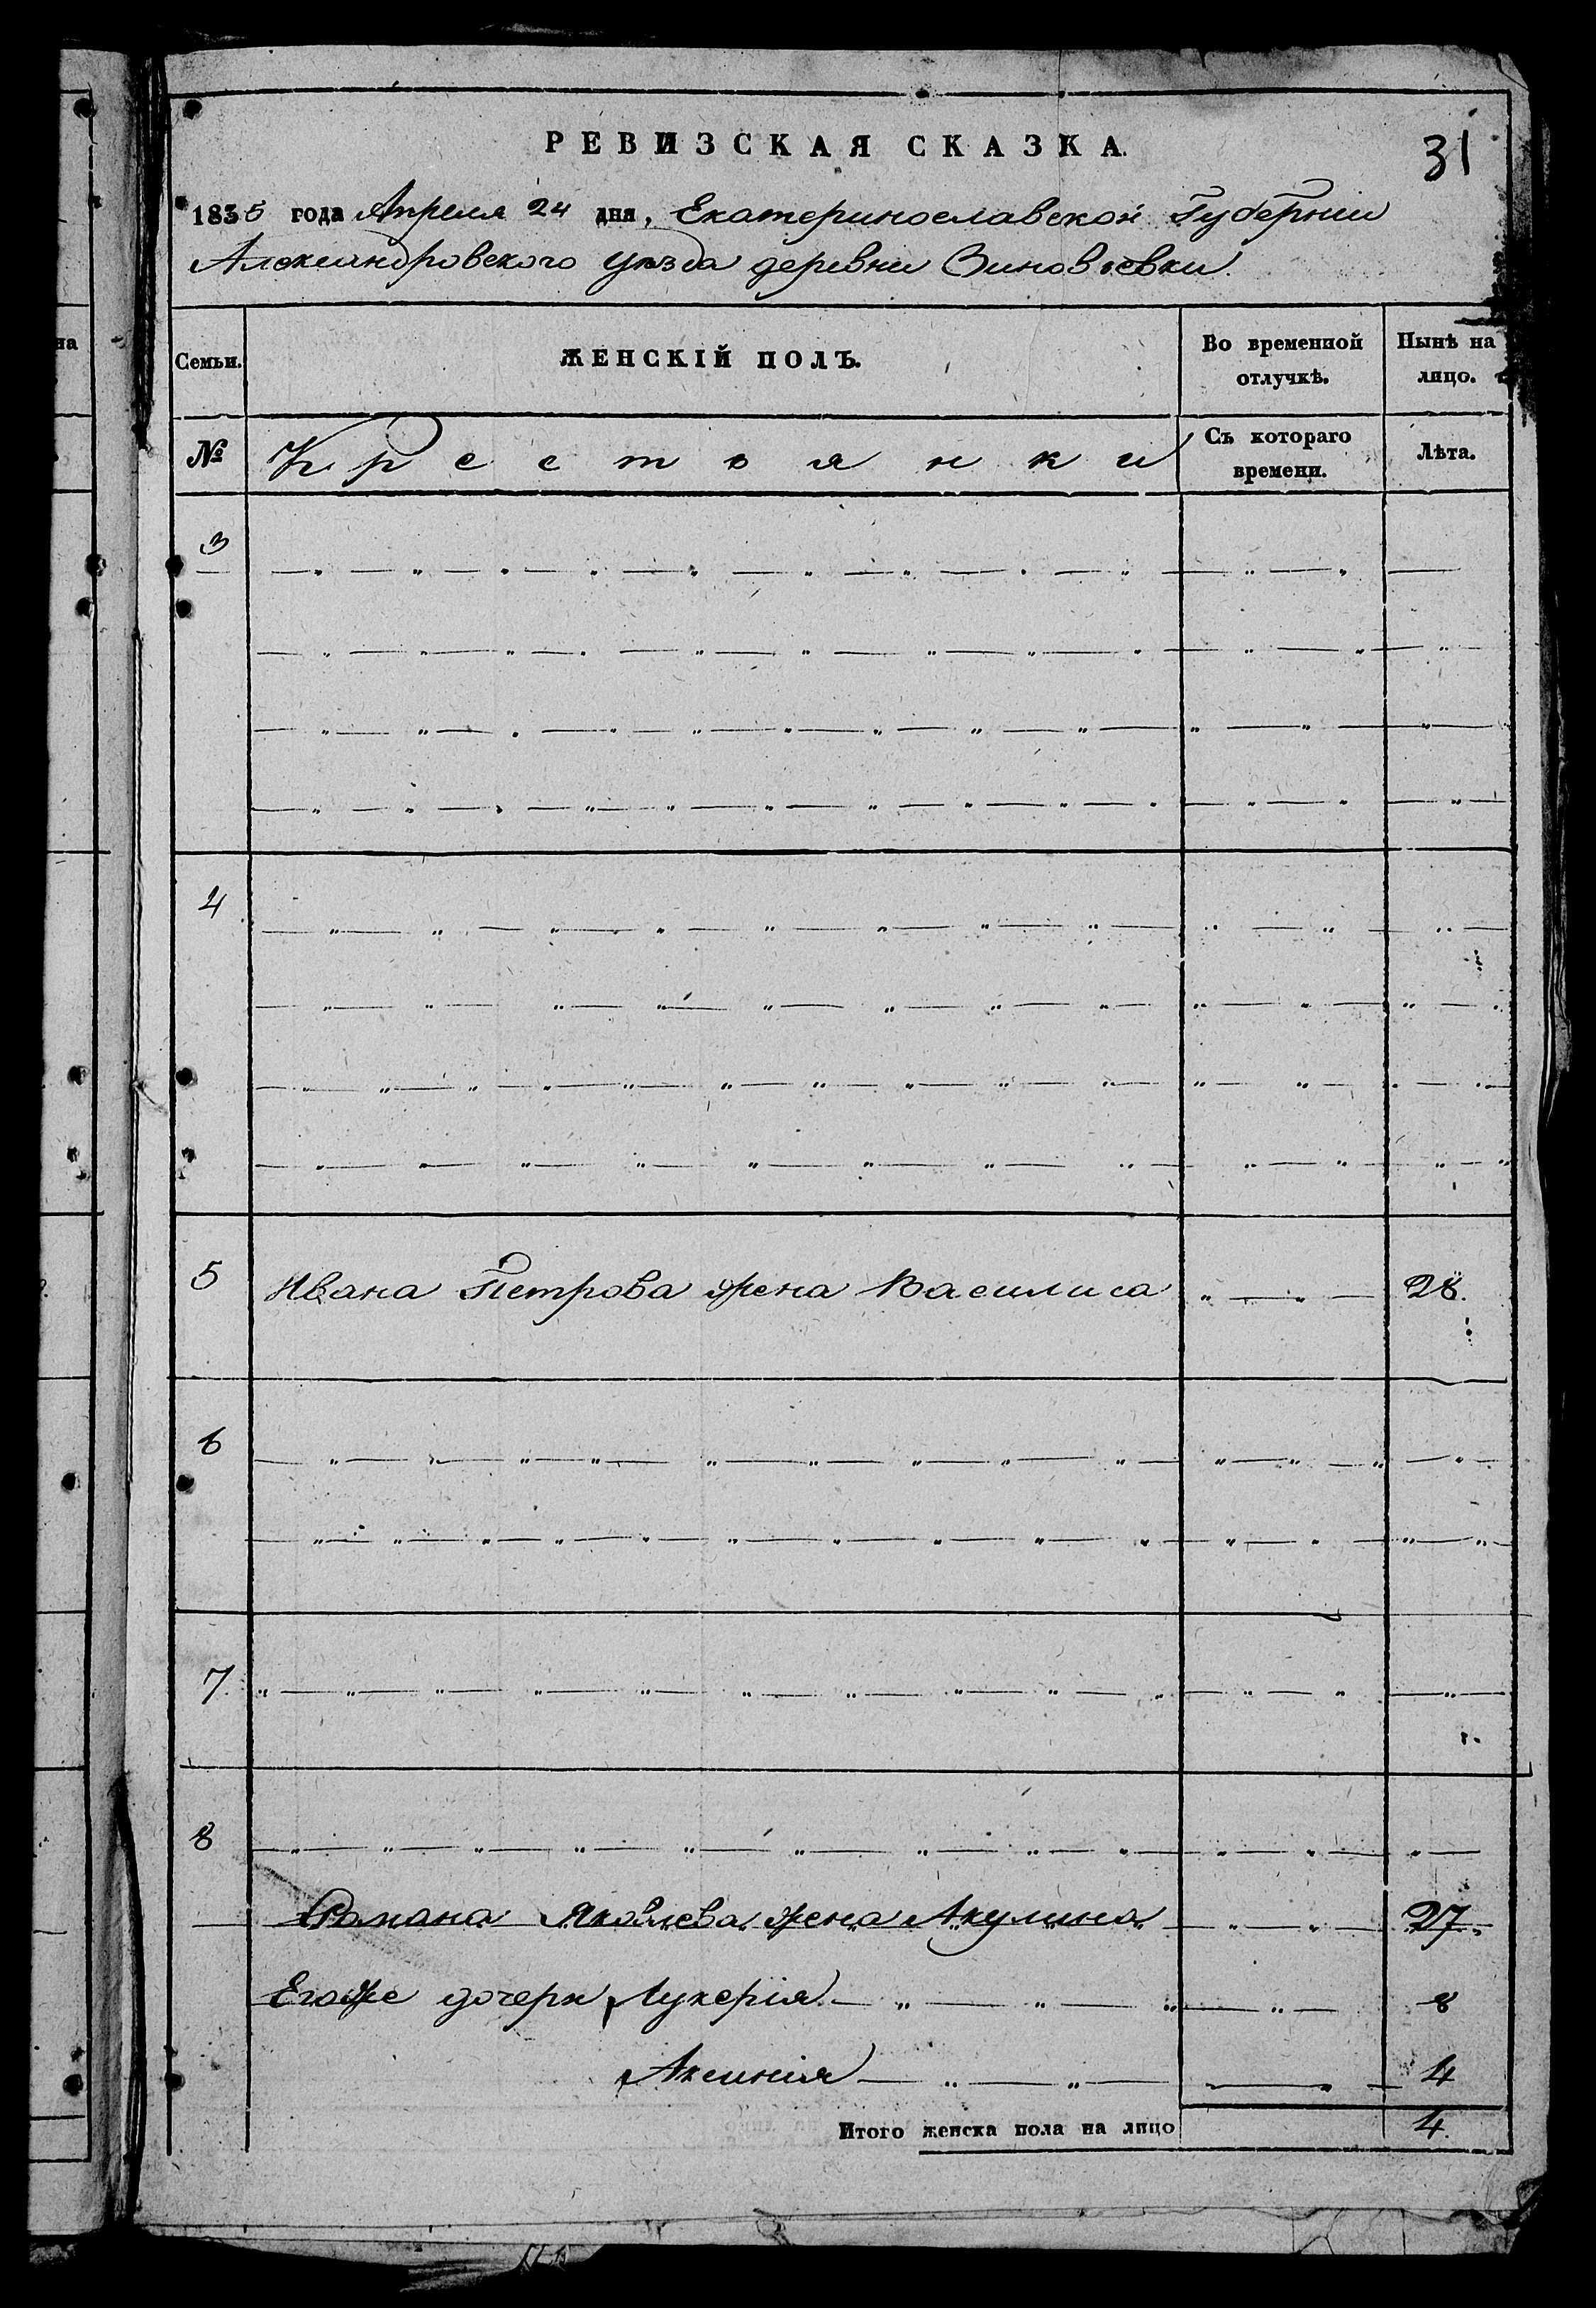 РЕВИЗСКАЯ СКАЗКА.
31
1835 года Апреля 24 дня, Екатеринославской Губернии
Александровского уѣзда деревни Зиновьевки.
Семьи.
ЖЕНСКІЙ ПОЛЪ.
Во временной отлучкѣ.
Нынѣ на лицо.
№
Крестьянки
Съ котораго времени.
Лѣта.
3
4
5 Ивана Петрова жена Василиса 28.
6
7
8
Романа Яковлева жена Акулина 27.
Егоже дочери Лукерія 8
Аксинія 4
Итого женска пола на лицо 4.